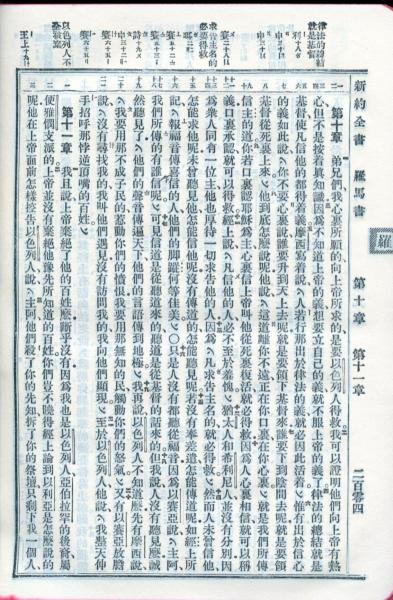 新約全書 羅馬書 第十章 第十一章 二百零四
羅
第十章 弟兄們我心裏所願的向上帝所求的是要以色列人得救我可以證明他們向上帝有熱
心但不是按着真知識因為不知道上帝的義想要立自己的義就不服上帝的義了律法的總結就是
基督使凡信他的都得着義摩西寫着說人若行那出於律法的義就必因此活着惟有出於信心
的義如此說你不要心裏說誰要升到天上去呢就是要領下基督來誰要下到陰間去呢就是要領
基督從死裏上來他到底怎麼說呢他說這道離你不遠正在你口裏在你心裏就是我們所傳
信主的道你若口裏認耶穌為主心裏信上帝叫他從死裏復活就必得救因為人心裏相信就可以稱
義口裏承認就可以得救經上說凡信他的人必不至於羞愧猶太人和希利尼人並沒有分別因
為衆人同有一位主他也厚待一切求告他的人因為凡求告主名的就必得救然而人未曾信他
怎能求他呢未曾聽見他怎能信他呢沒有傳道的怎能聽見呢若沒有奉差遣怎能傳道呢如經上所
記報福音傳喜信的人他們的脚蹤何等佳美○只是人沒有都聽從福音因為以賽亞說主阿
我們所傳的有誰信呢可見信道是從聽道來的聽道是從基督的話來的但我說人沒有聽見麼誠
然聽見了他們的聲音傳遍天下他們的言語傳到地極我再說以色列人不知道麼先有摩西說
我要用那不成子民的惹動你們的憤恨我要用那無知的民觸動你們的怒氣又有以賽亞放膽
說沒有尋找我的我叫他們遇見沒有訪問我的我向他們顯現至於以色列人他說我整天伸
手招呼那悖逆頂嘴的百姓
第十一章 我且說上帝棄絕了他的百姓麼斷乎沒有因為我也是以色列人亞伯拉罕的後裔屬
便雅憫支派的上帝並沒有棄絕他豫先所知道的百姓你們豈不曉得經上論到以利亞是怎麼說的
呢他在上帝面前怎樣控告以色列人說主阿他們殺了你的先知拆了你的祭壇只剩下我一個人
律法的總結就是基督
求告主名的必要得救
以色列人不全被棄